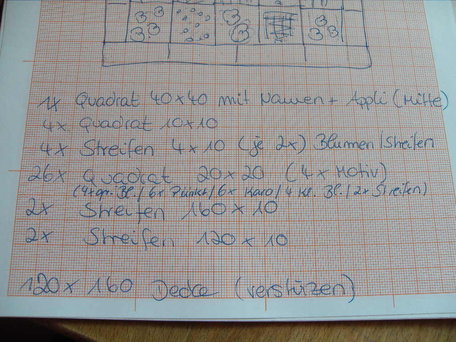 1x Quadrat 40x40 mit Namen + Appli (Mitte)
4x Quadrat 10x10
4x Streifen 4x10 (je 2x) Blumen/Streifen
26x Quadrat 20x20 (4x Motiv)
(4xgr. Bl. / 6x Punkt / 6x Karo / 4 kl. Bl. / 2x Streifen)
2x Streifen 160x10
2x Streifen 120x10
120x160 Decke (verstürzen)